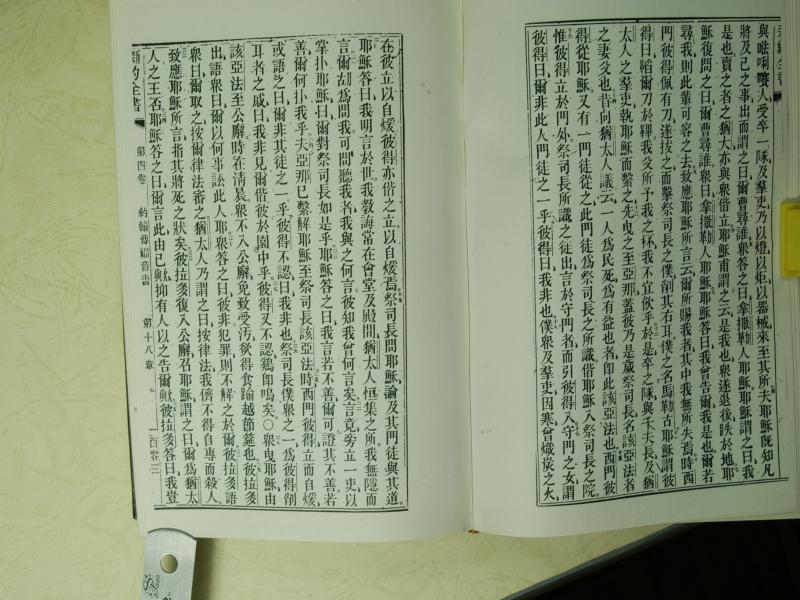 新約全書
與𠵽唎㘔人受卒一隊及羣吏乃以燈以炬以器械來至其所夫耶穌旣知凡
將及己之事出而謂之曰爾曹尋誰衆答之曰拿撒勒人耶穌耶穌謂之曰我
是也賣之者之猶大亦與衆偕立耶穌甫謂之云是我也衆遂退後跌於地耶
穌復問之曰爾曹尋誰衆曰拿撒勒人耶穌耶穌答曰我曾告爾我是也爾若
尋我則此輩可容之去致應耶穌所言云爾所賜我者其中我無所失焉時西
門彼得佩有刀遂拔之而擊祭司長之僕削其右耳僕之名馬勒古耶穌謂彼
得曰韜爾刀於鞞我父所予我之杯我不宜飲乎於是卒之隊與千夫長及猶
太人之羣吏執耶穌而繫之先曳之至亞那蓋彼乃是歲祭司長名該亞法者
之妻父也昔向猶太人議云一人爲民死爲有益也者卽此該亞法也西門彼
得從耶穌又有一門徒從之此門徒爲祭司長之所識偕耶穌入祭司長之院
惟彼得立於門外祭司長所識之徒出言於守門者而引彼得入守門之女謂
彼得曰爾非此人門徒之一乎彼得曰我非也僕衆及羣吏因寒曾熾炭之火
在彼立以自煖彼得亦偕之立以自煖焉祭司長問耶穌論及其門徒與其道
耶穌答曰我明言於世我敎誨常在會堂及殿間猶太人恒集之所我無隱而
言爾胡爲問我可問聽我者我與之何言彼知我曾何言矣言竟旁立一吏以
掌扑耶穌曰爾對祭司長如是乎耶穌答之曰我言若不善爾可證其不善若
善爾何扑我乎夫亞那已繫解耶穌至祭司長該亞法時西門彼得立而自煖
或語之曰爾非其徒之一乎彼得不認曰我非也祭司長僕衆之一爲彼得削
耳者之戚曰我非見爾偕彼於園中乎彼得又不認鷄卽鳴矣〇衆曳耶穌由
該亞法至公廨時在淸晨衆不入公廨免致受汚欲得食踰越節筵也彼拉多
出語衆曰爾以何事訟此人耶衆答之曰彼非犯罪則不解之於爾彼拉多語
衆曰爾取之按爾律法審之猶太人乃謂之曰按律法我儕不得自專而殺人
致應耶穌所言指其將死之狀矣彼拉多復入公廨召耶穌謂之曰爾爲猶太
人之王否耶穌答之曰爾言此由己歟抑有人以之告爾歟彼拉多答曰我豈
新約全書
第四卷
約翰傳福音書
第十八章
百零三